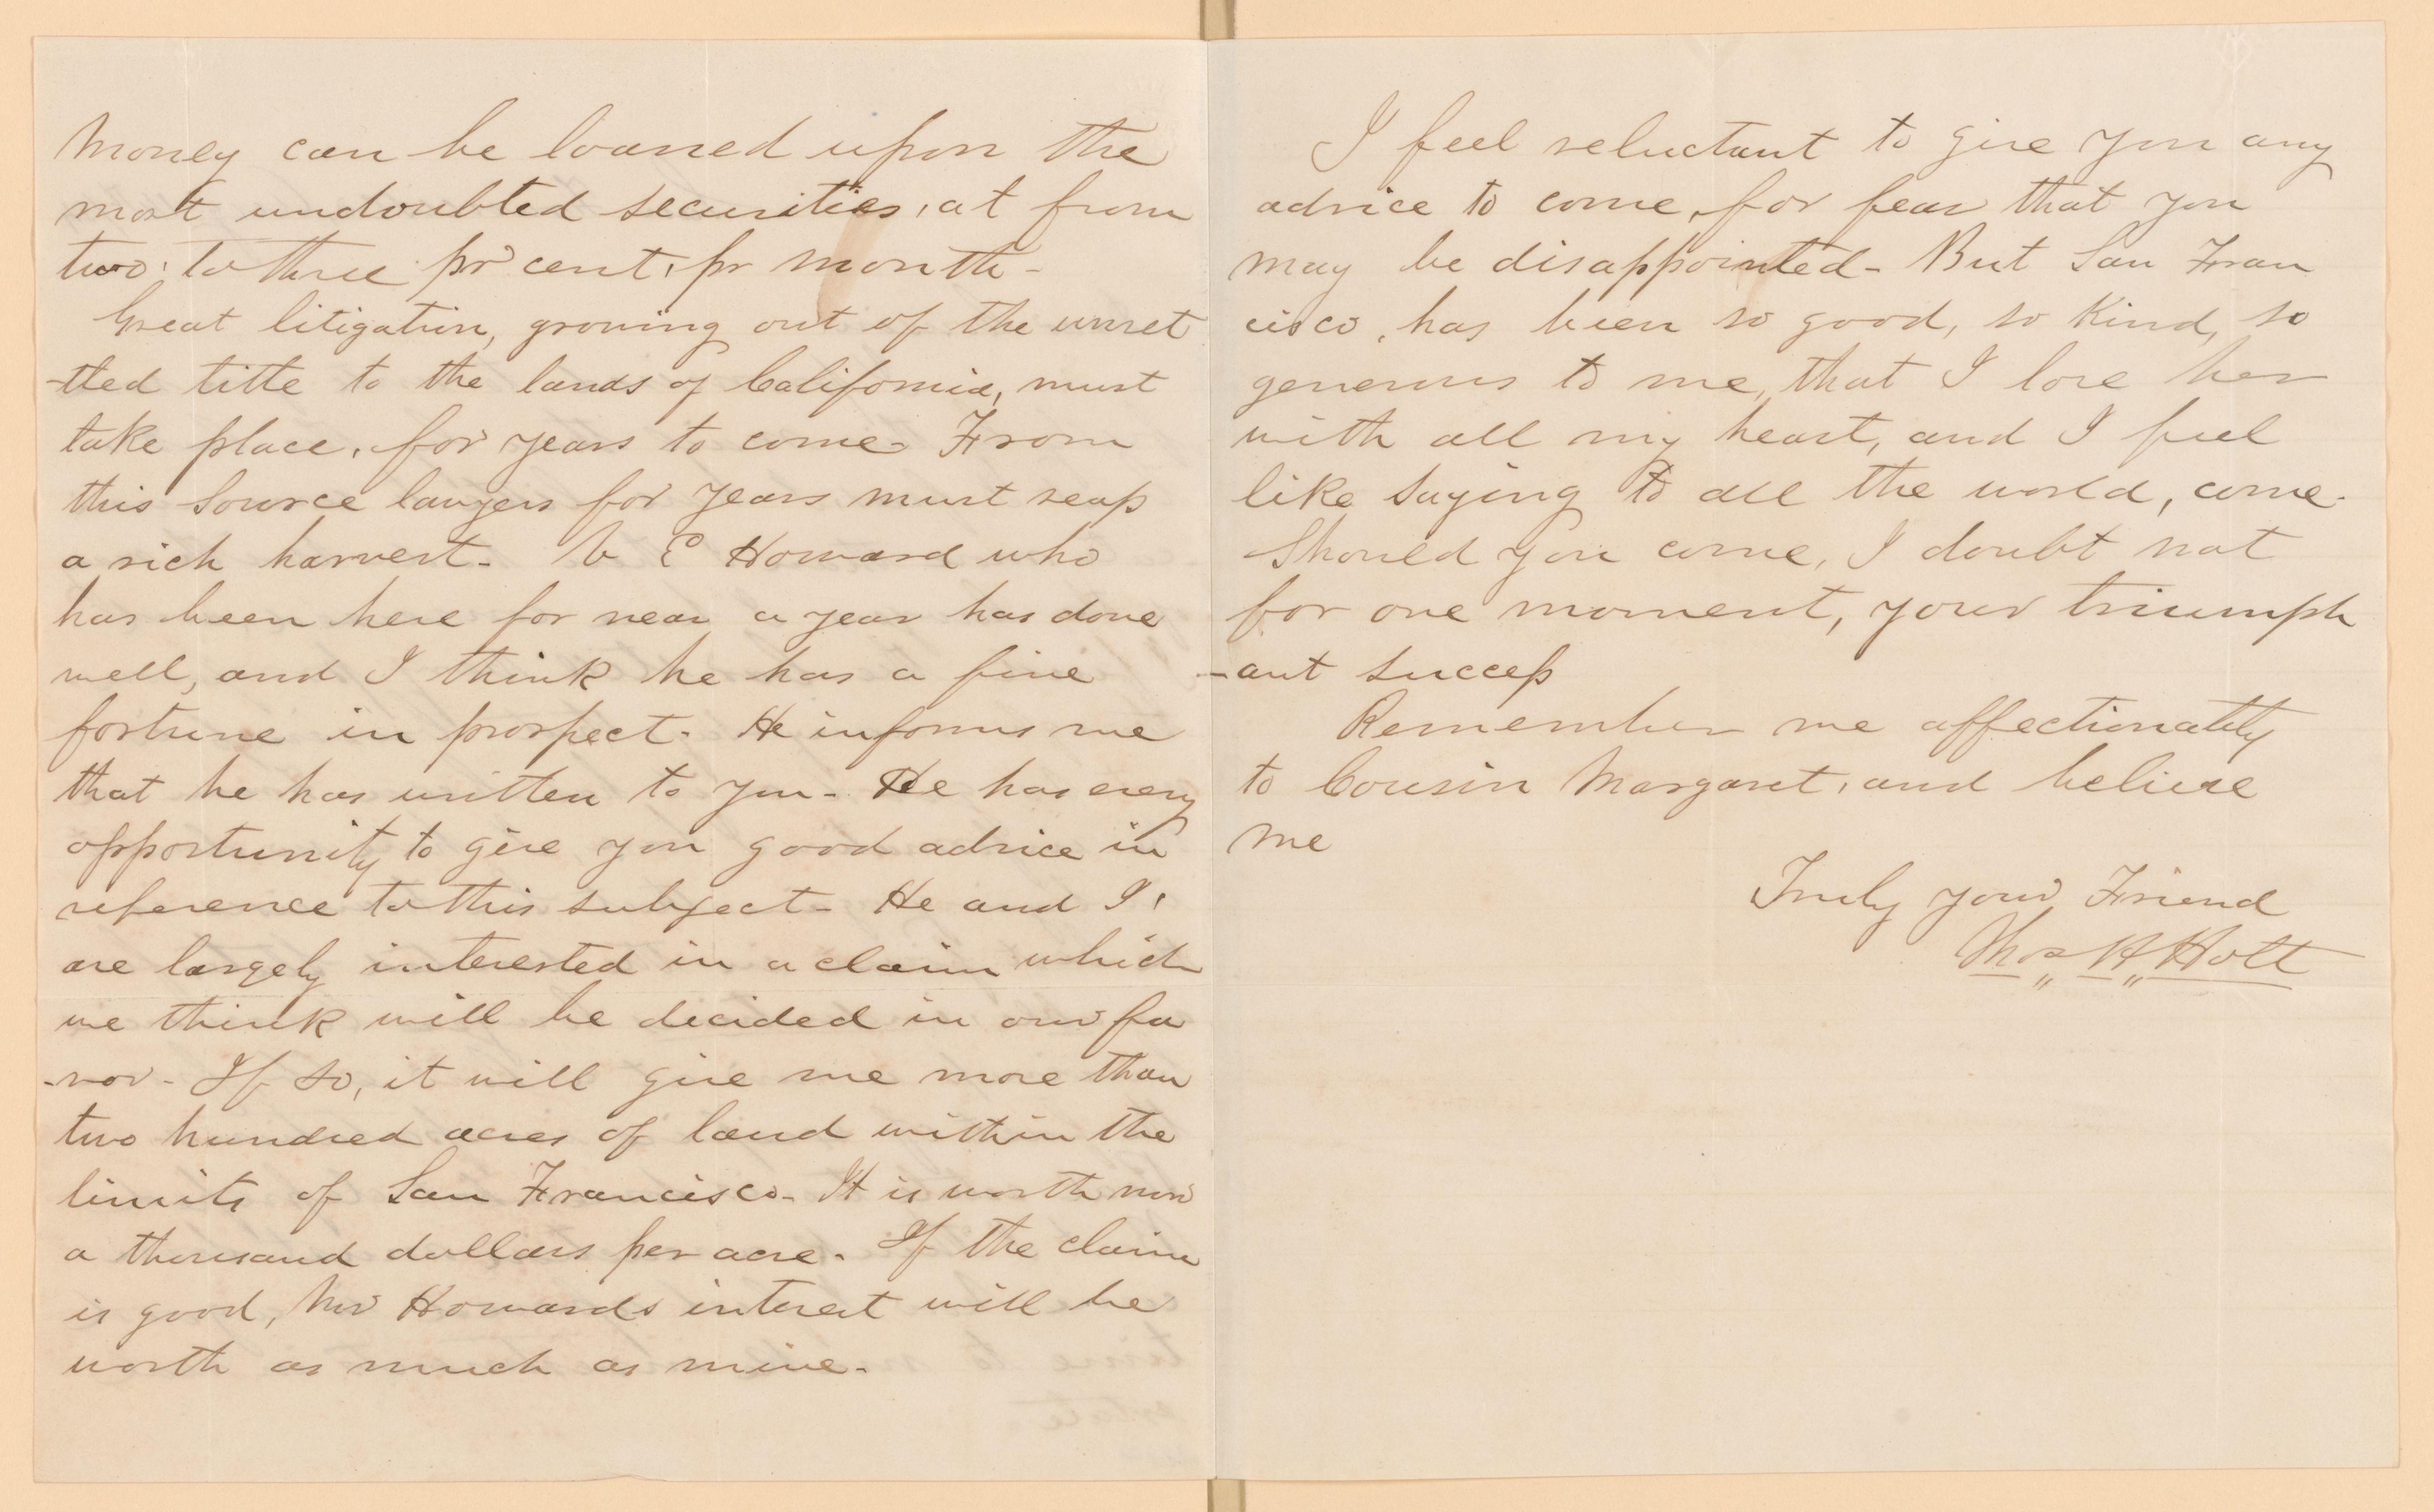 Money can be loaned upon the
most undoubted securities, at from
two, to three pr cent, pr month -
Great litigation, growing out of the unset
-tled title to the lands of California, must
take place, for years to come. From
this source lawyers for years must reap
a rich harvest. V E Howard who
has been here for near a year has done
well, and I think he has a fine
fortune in prospect. He informs me
that he has written to you - He has every
opportunity to give you good advice in
reference to this subject - He and I,
are largely interested in a claim which
we think will be decided in our fa
-vor - If so, it will give me more than
two hundred acres of land within the
limits of San Francisco - It is worth now
a thousand dollars per acre. If the claim
is good, Mr Howards interest will be
worth as much as mine.
I feel reluctant to give you any
advice to come, for fear that you
may be disappointed - But San Fran
cisco, has been so good, so kind, so
generous to me, that I love her
with all my heart, and I feel
like saying to all the world, come.
Should you come, I doubt not
for one moment, your triumph
-ant success
Remember me affectionately
to Cousin Margaret, and believe
me
Truly your Friend
Thos H Holt